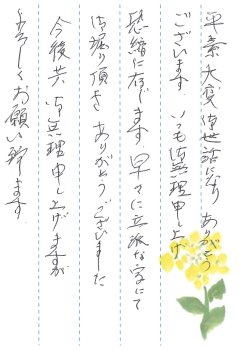 平素大変御世話になり ありがとう
ございます。いつも御無理申し上げ
恐縮に存じます。早々に立派な字にて
御彫り頂き ありがとうございました
今後共 御無理申し上げますが
よろしくお願い致します。